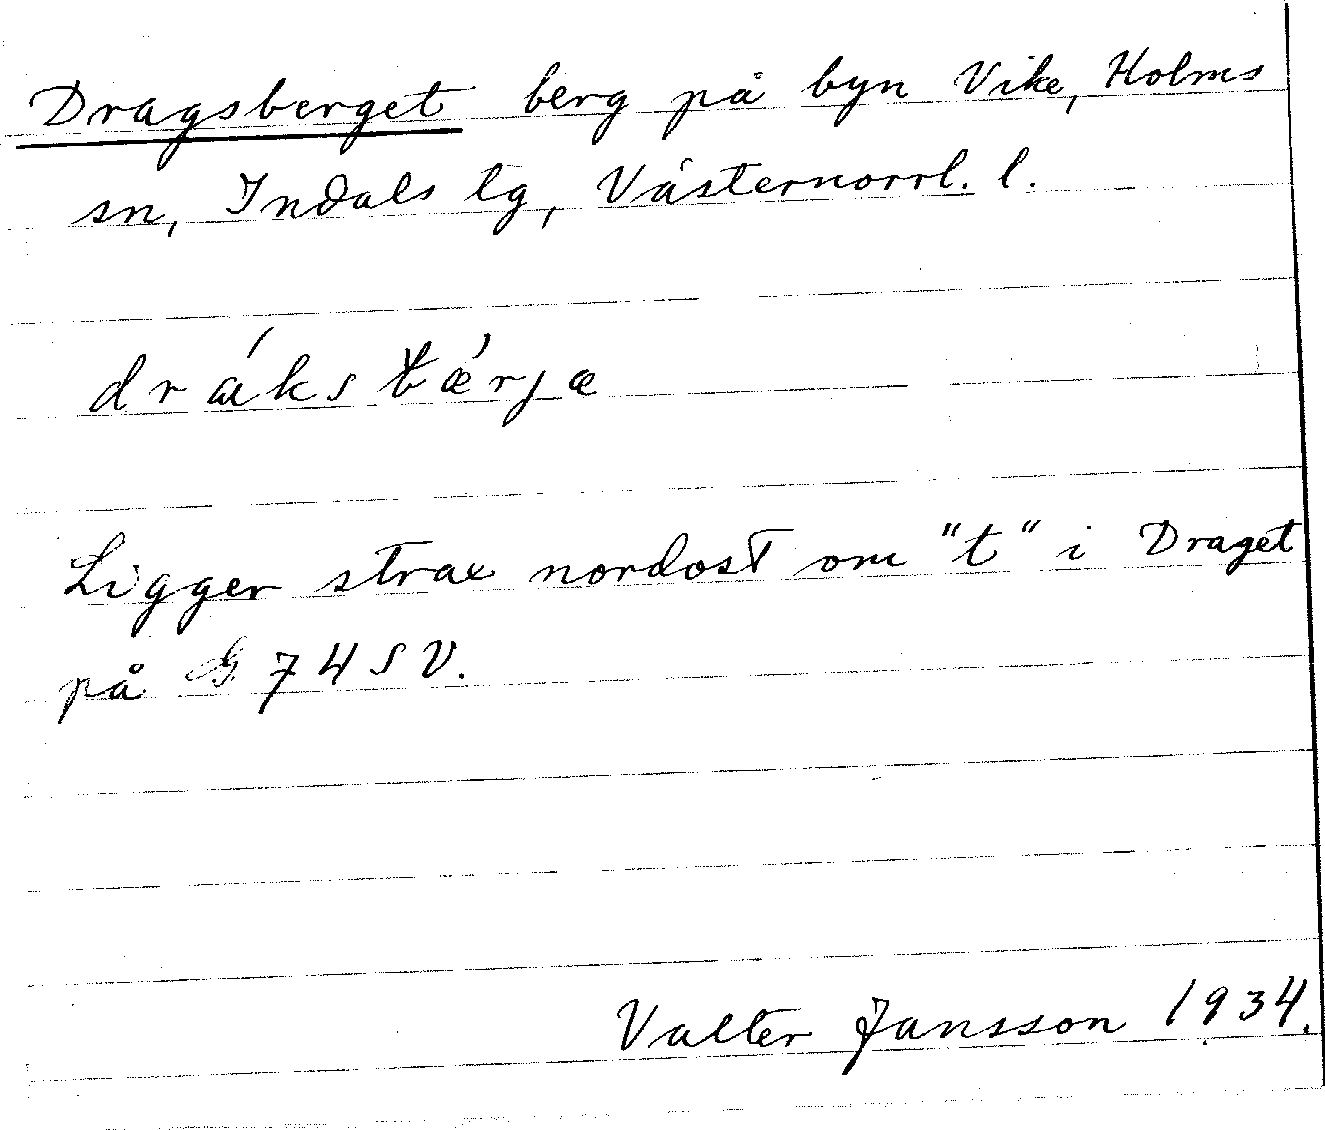 Dragsberget berg på byn Vike, Holms
sn, Indals tg, Västernorrl. l.
drákstǽrjæ
Ligger strax nordost om "t" i Draget
på G 74 SV.
Valter Jansson 1934.